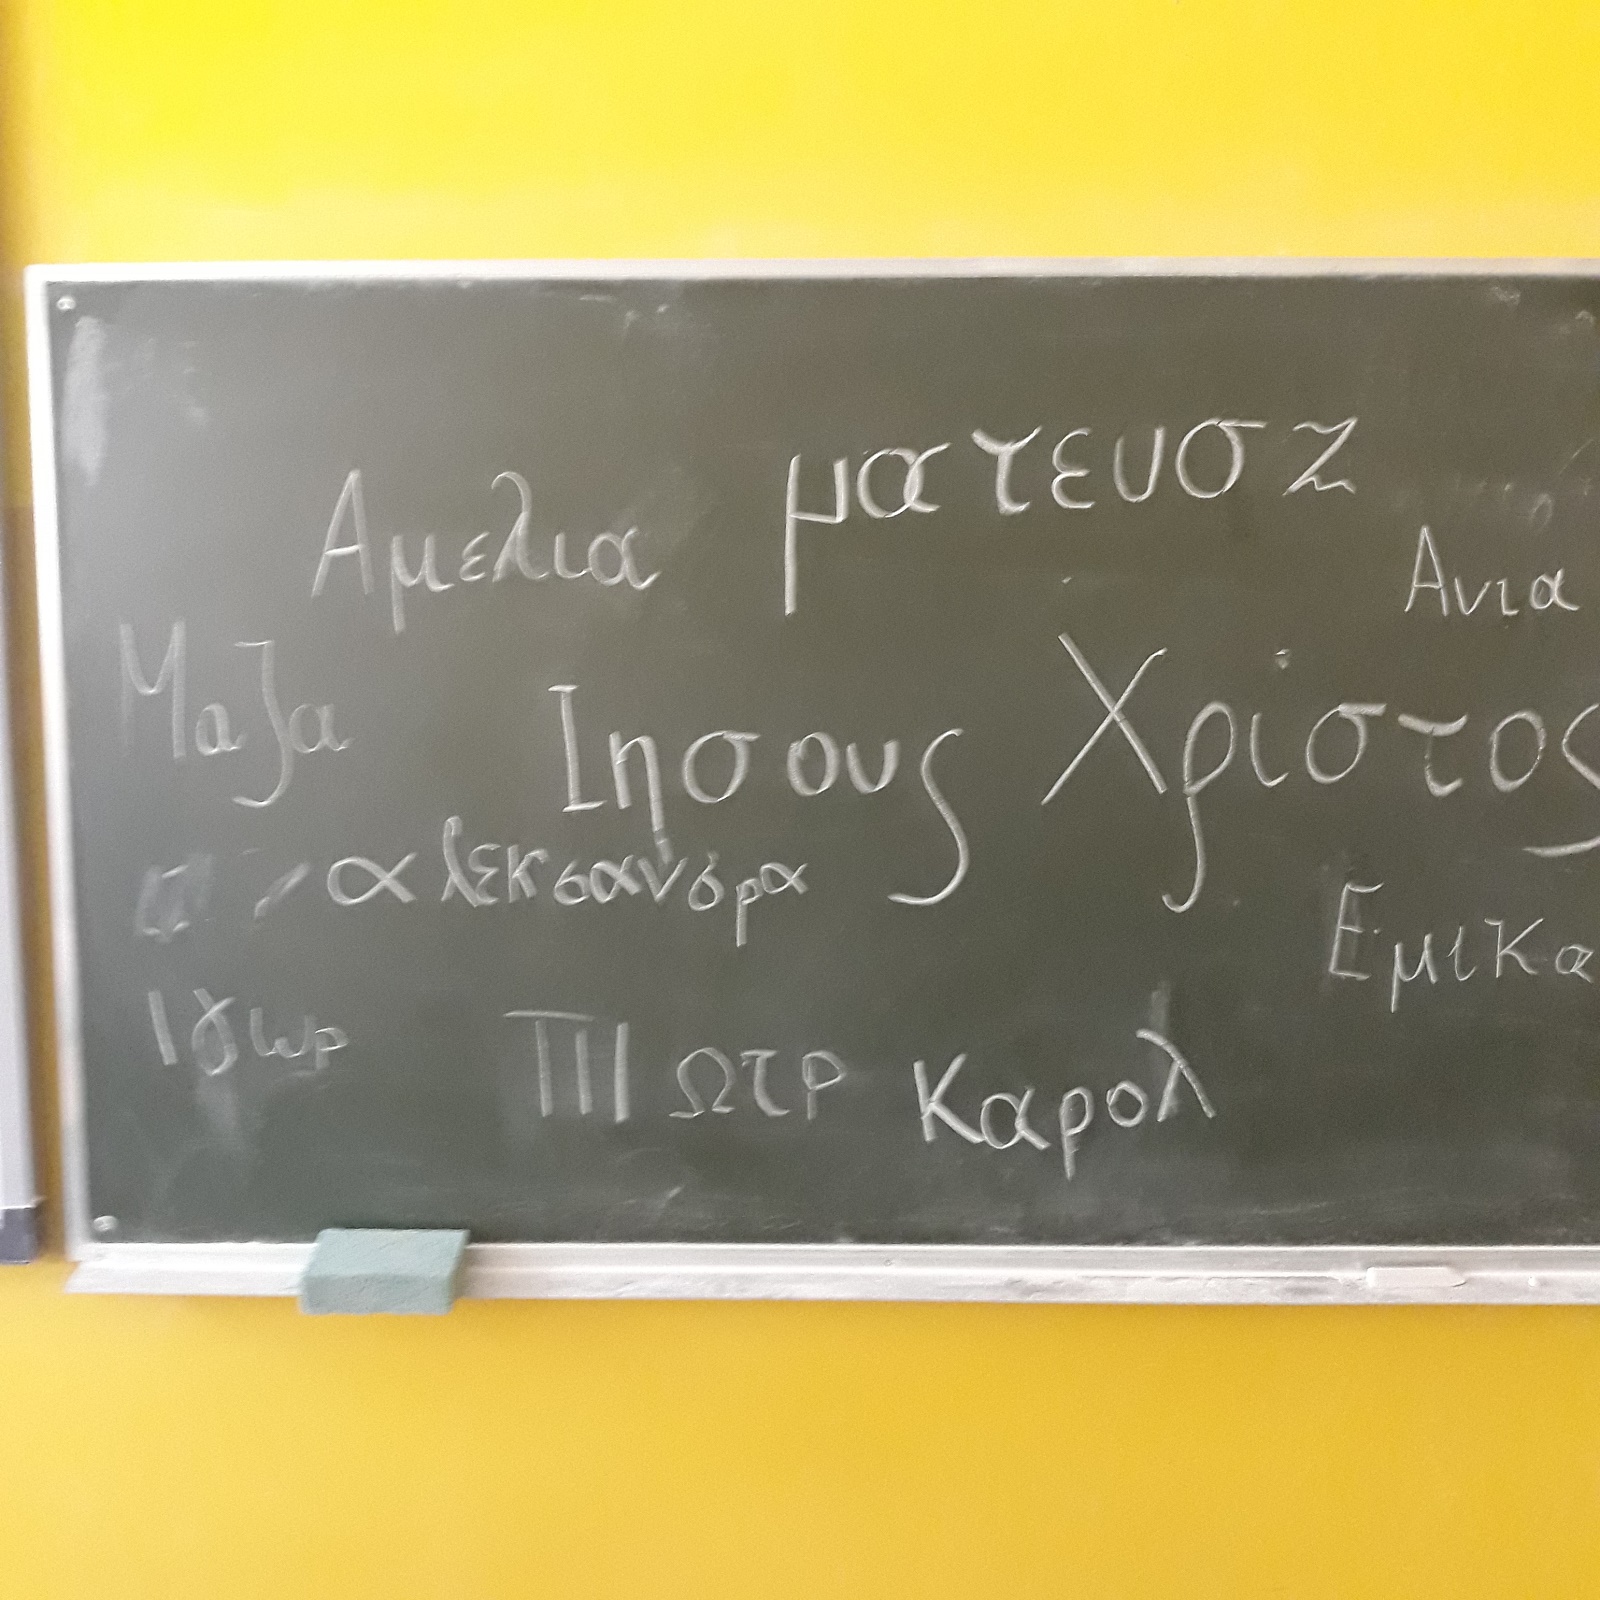 Αμελια
ματευσz
Ανια
Μαja
Ιησους Χριστος
αλεκσανδρα
Εμικα
Ιγωρ
ΠΙΩτρ
Καρολ